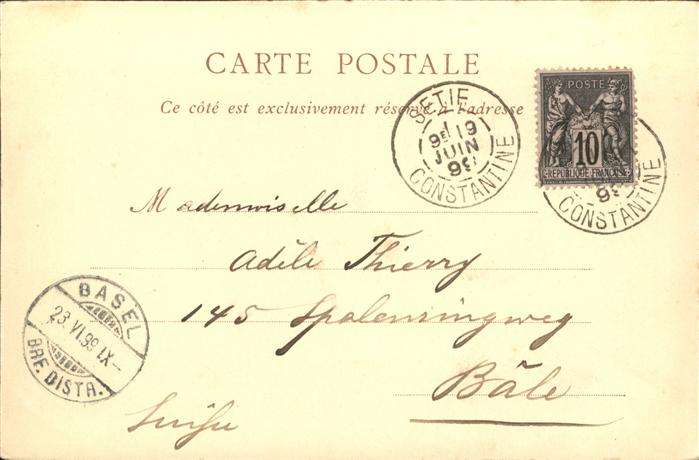 CARTE POSTALE
Ce côté est exclusivement réservé à l'adresse
SETIF
9E 19
JUIN
99
CONSTANTINE
POSTE
10
REPUBLIQUE FRANÇAISE
99
CONSTANTINE
Mademoiselle
Adèle Thierry
145 Spalenringweg
Bâle
Suisse
BASEL
23.VI.99.IX-
BRF. DISTR.